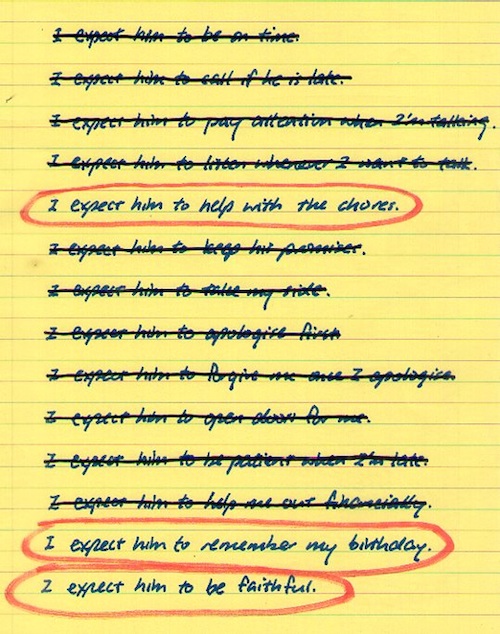 I expect him to be on time.
I expect him to call if he is late.
I expect him to pay attention when I'm talking.
I expect him to listen whenever I want to talk.
I expect him to help with the chores.
I expect him to keep his promises.
I expect him to take my side.
I expect him to apologise first
I expect him to forgive me once I apologise.
I expect him to open doors for me.
I expect him to be patient when I'm late.
I expect him to help me out financially.
I expect him to remember my birthday.
I expect him to be faithful.